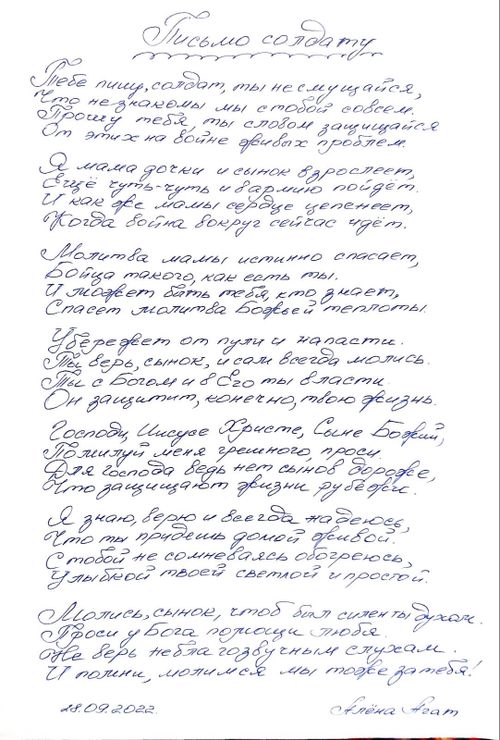 Письмо солдату
Тебе пишу, солдат, ты не смущайся,
Что не знакомы мы с тобой совсем.
Прошу тебя, ты словом защищайся
От этих на войне живых проблем.
Я мама дочки и сынок взрослеет,
Ещё чуть-чуть и в армию пойдёт.
И как же мамы сердце цепенеет,
Когда война вокруг сейчас идёт.
Молитва мамы истинно спасает,
Бойца такого, как есть ты.
И может быть тебя, кто знает,
Спасет молитва Божьей теплоты.
Убережет от пули и напасти.
Ты верь, сынок, и сам всегда молись.
Ты с Богом и в Его ты власти.
Он защитит, конечно, твою жизнь.
Господи, Иисусе Христе, Сыне Божий,
Помилуй меня грешного, проси.
Для господа ведь нет сынов дороже,
Что защищают жизни рубежи.
Я знаю, верю и всегда надеюсь,
Что ты придешь домой живой.
С тобой не сомневаясь обогреюсь,
Улыбкой твоей светлой и простой.
Молись, сынок, чтоб был силен ты духом.
Проси у Бога помощи любя.
Не верь неблагозвучным слухам.
И помни, молимся мы тоже за тебя!
28.09.2022 Алёна Агат